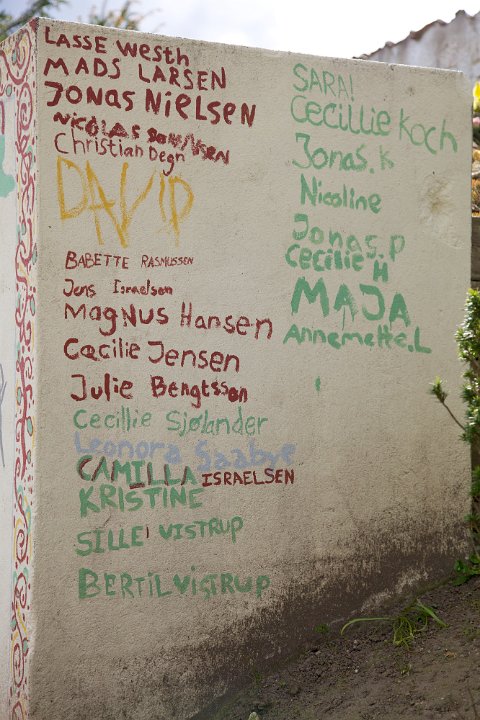 LASSE Westh
MADS LARSEN
JONAS NIELSEN
NICOLAS SØRENSEN
Christian Degn
DAVID
BABETTE RASMUSSEN
Jens Israelsen
MAGNUS Hansen
Cæcilie Jensen
Julie Bengtsson
Cecillie Sjølander
Leonora Saabye
CAMILLA ISRAELSEN
KRISTINE
SILLE VISTRUP
BERTIL VISTRUP
SARA!
Cecillie Koch
Jonas.K
Nicoline
Jonas.P
Cecilie H
MAJA
Annemette.L